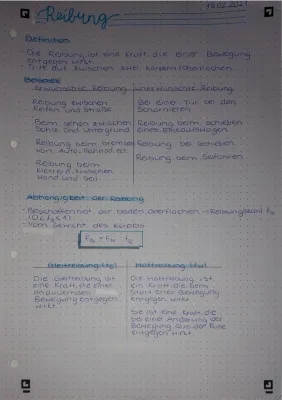 Reibung
18.02.2021
Definition
Die Reibung ist eine Kraft, die einer Bewegung
entgegen wirkt.
Tritt auf zwischen zwei Körpern/Oberflächen.
Beispiele
erwünschte Reibung
unerwünschte Reibung
Reibung zwischen
Reifen und Straße
Bei eine Tür bei den
Scharnieren
Beim gehen zwischen
Schuh und Untergrund
Reibung beim schieben
eines Einkaufswagen
Reibung beim bremsen
von Auto, Fahrrad ect
Reibung bei
Reibung beim
klettern zwischen
Hand und Seil
Reibung beim
Abhängigkeit der Reibung
Beschaffenheit der beiden Oberflächen → Reibungszahl
Vom Gewicht des Körpers
Gleitreibung
Haftreibung
Die Gleitreibung ist
eine Kraft, die einer
andauernden
Bewegung entgegen
wirkt
Die Haftreibung ist
ein Kraft, die beim
Start einer Bewegung
entgegen wirkt.
Sie ist eine Kraft, die
bei einer Änderung der
Bewegung aus der Ruhe
entgegen wirkt.